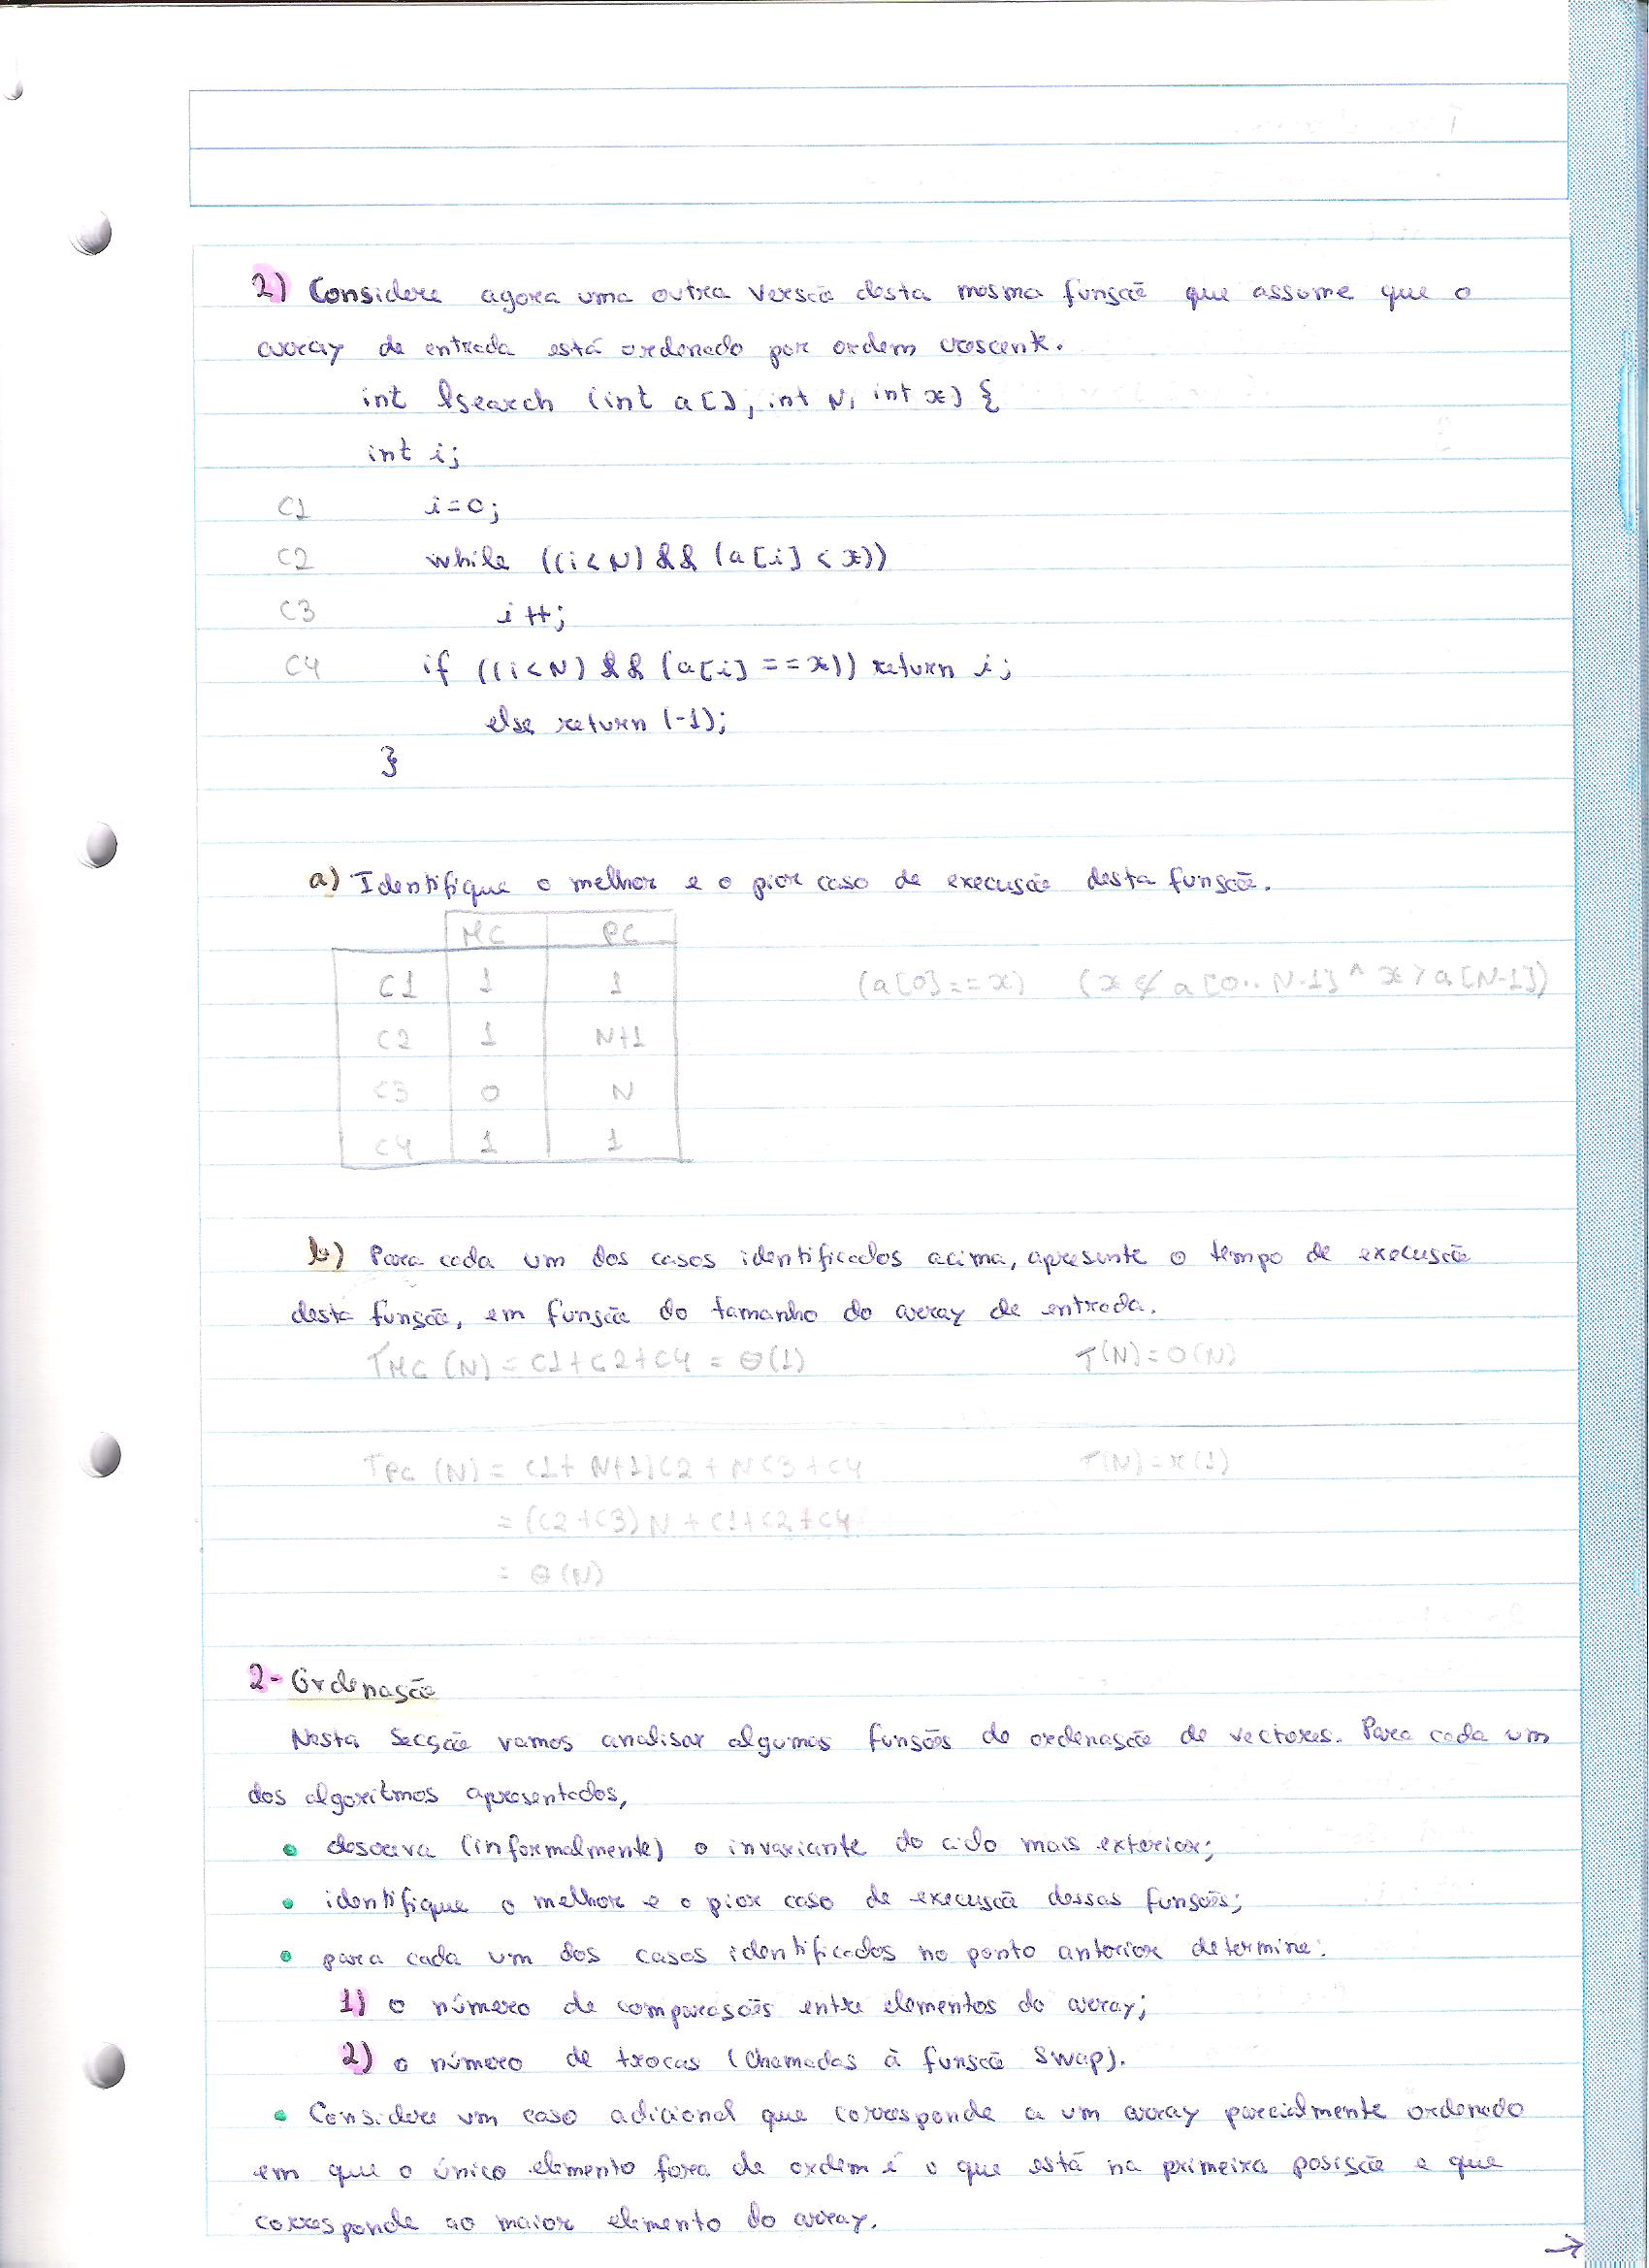 2) Considere agora uma outra versão desta mesma função que assume que o
array de entrada está ordenado por ordem crescente.
int lsearch (int a[], int N, int x) {
int i;
C1 i=0;
C2 while ((i<N) && (a[i] < x))
C3 i++;
C4 if ((i<N) && (a[i] ==x)) return i;
else return (-1);
}
a) Identifique o melhor e o pior caso de execução desta função.
MC PC
C1 1 1 (a[0]==x) (x ∉ a[0..N-1] ^ x > a[N-1])
C2 1 N+1
C3 0 N
C4 1 1
b) Para cada um dos casos identificados acima, apresente o tempo de execução
desta função, em função do tamanho do array de entrada.
TMC (N) = C1+C2+C4 = Θ(1) T(N)=O(N)
TPC (N) = C1+ N+1)C2 + NC3+C4 T(N)=Ω(1)
= (C2+C3) N + C1+C2+C4
= Θ(N)
2- Ordenação
Nesta secção vamos analisar algumas funções de ordenação de vectores. Para cada um
dos algoritmos apresentados,
• descreva (informalmente) o invariante do ciclo mais exterior;
• identifique o melhor e o pior caso de execução dessas funções;
• para cada um dos casos identificados no ponto anterior determine:
1) o número de comparações entre elementos do array;
2) o número de trocas (chamadas à função swap).
• Considere um caso adicional que corresponde a um array parcialmente ordenado
em que o único elemento fora de ordem é o que está na primeira posição e que
corresponde ao maior elemento do array.
→